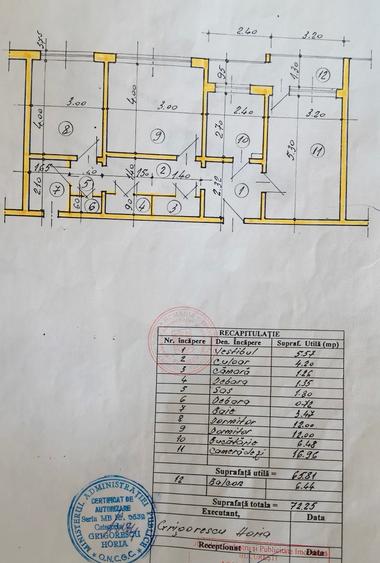 2.40 3.20
.95 1.30 12
4.00 3.00 8
4.00 3.00 9
2.40 2.70 10
3.20 5.30 11
1.65 2.10 7
5 .60 6
1.40 2
.90 4 3
2.32 1
RECAPITULAȚIE
Nr. încăpere Den. Încăpere Supraf. Utilă (mp)
1 Vestibul 5.57
2 Culoar 4.20
3 Cămară 1.26
4 Debara 1.35
5 Sas 1.80
6 Debara 0.72
7 Baie 3.47
8 Dormitor 12.00
9 Dormitor 12.00
10 Bucătărie 6.48
11 Camera de zi 16.96
Suprafață utilă = 65.81
12 Balcon 6.44
Suprafață totală = 72.25
Executant, Data
Grigorescu Horia
Receptionat Data
MINISTERUL ADMINISTRAȚIEI PUBLICE
CERTIFICAT DE
AUTORIZARE
Seria MB Nr.
Categoria
GRIGORESCU
HORIA
O.N.C.G.C.